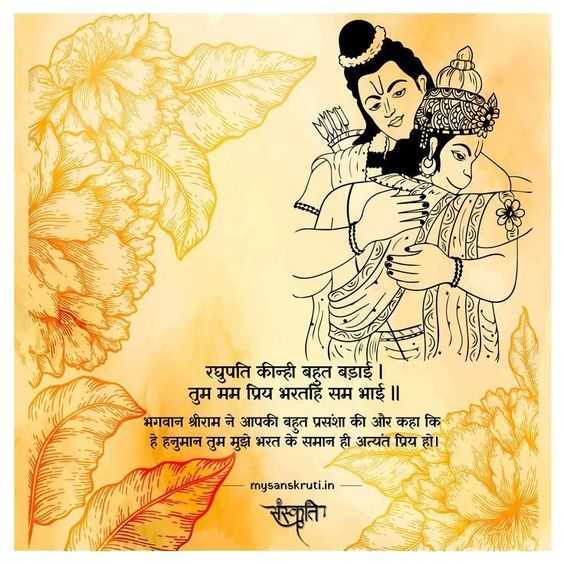 रघुपति कीन्ही बहुत बड़ाई ।
तुम मम प्रिय भरतहि सम भाई ॥
भगवान श्रीराम ने आपकी बहुत प्रसंशा की और कहा कि
हे हनुमान तुम मुझे भरत के समान ही अत्यंत प्रिय हो।
mysanskruti.in
संस्कृति